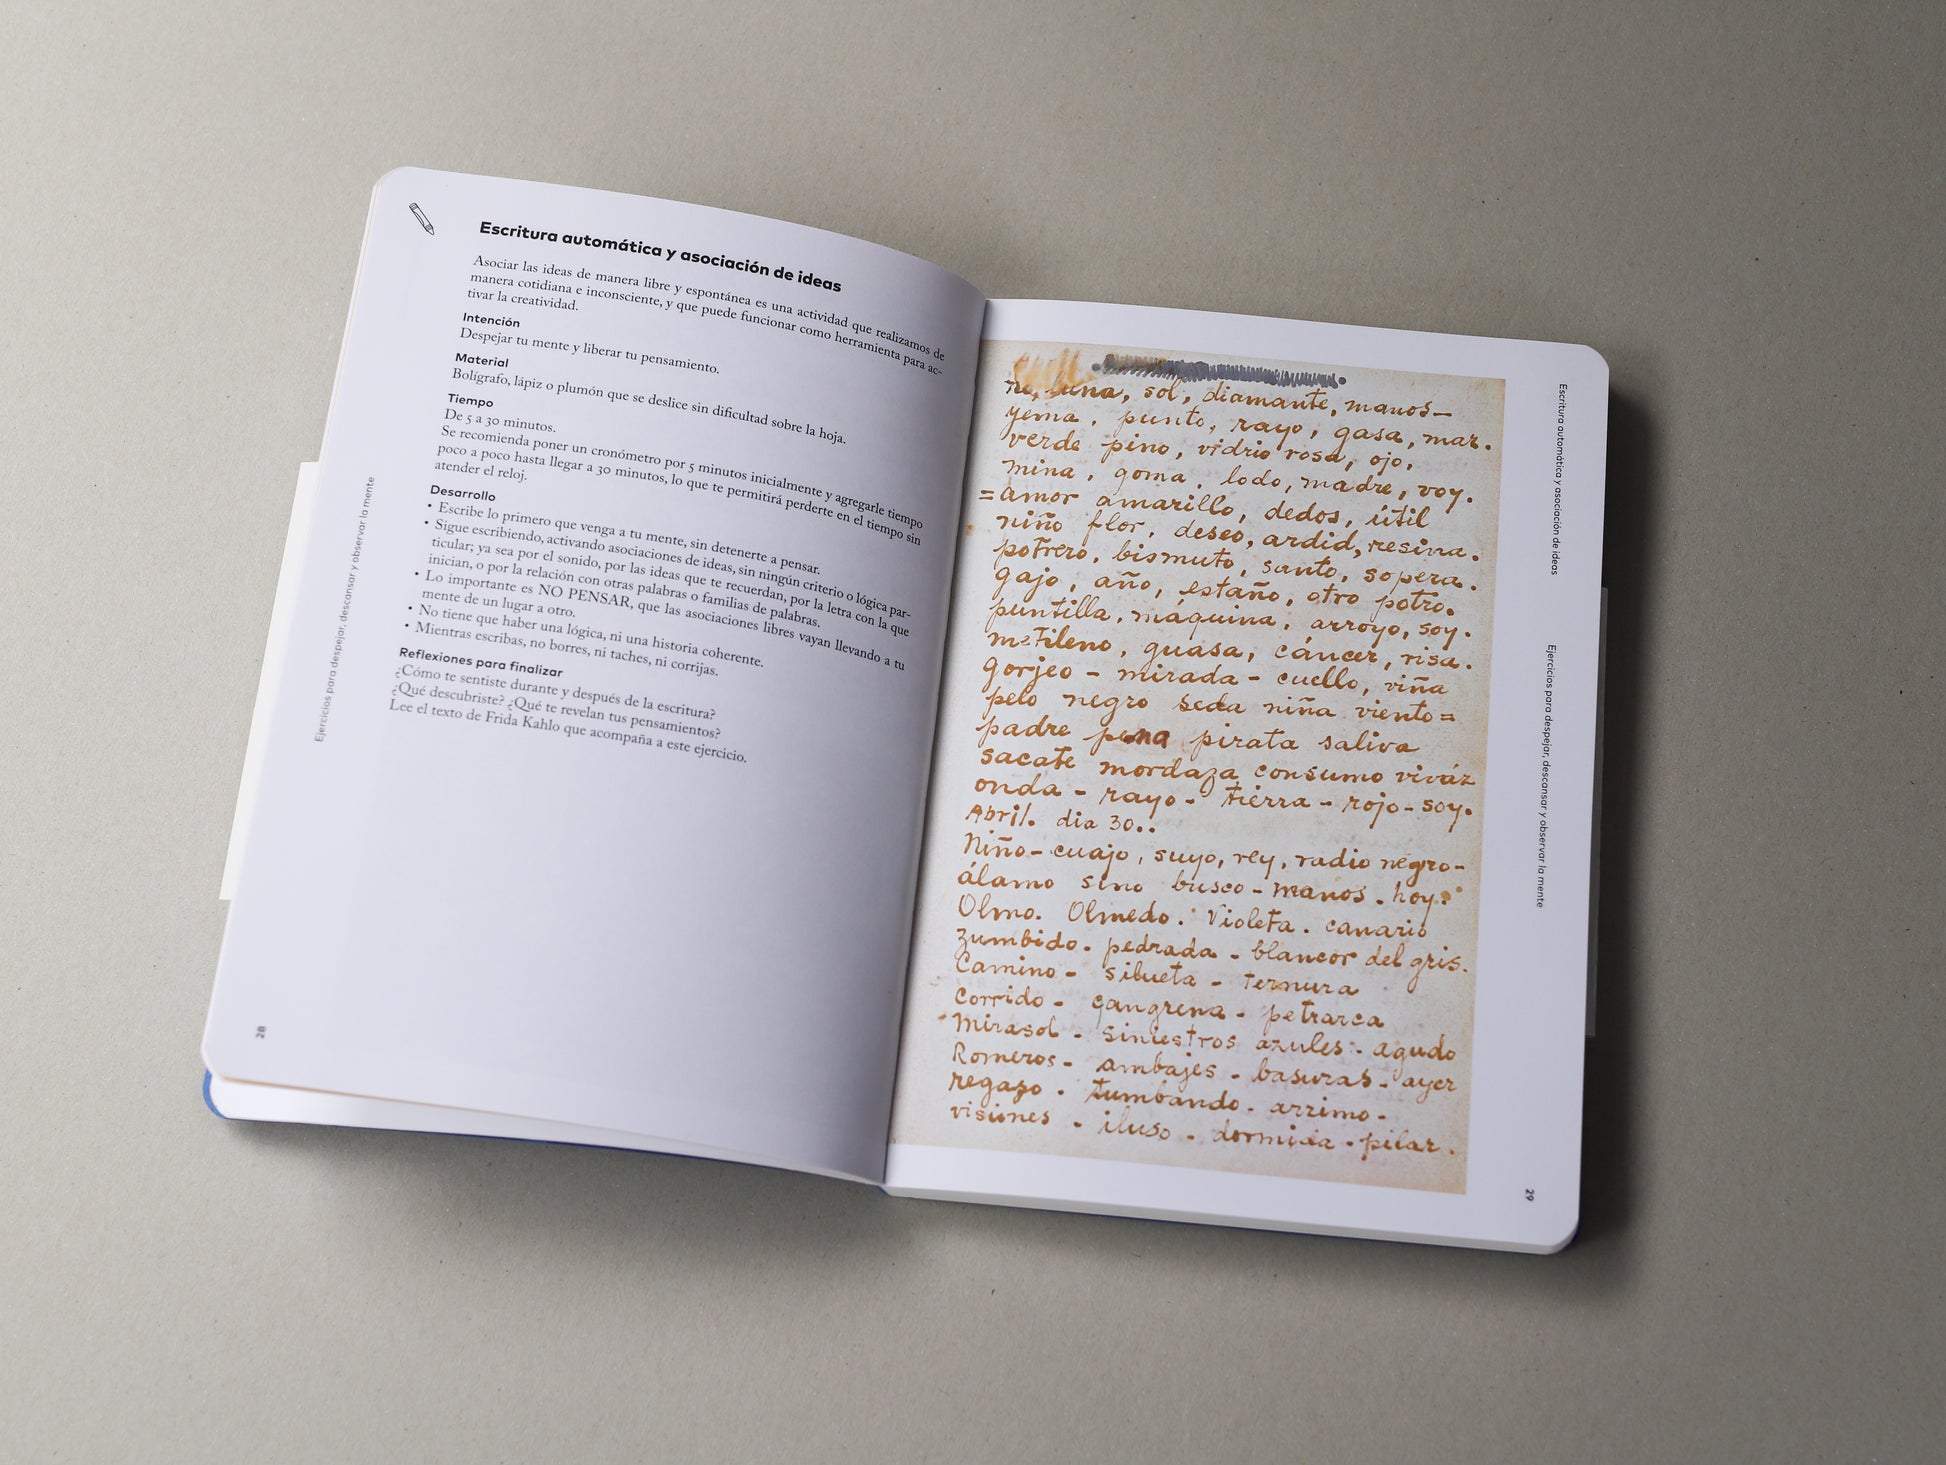 Escritura automática y asociación de ideas
Asociar las ideas de manera libre y espontánea es una actividad que realizamos de
manera cotidiana e inconsciente, y que puede funcionar como herramienta para ac-
tivar la creatividad.
Intención
Despejar tu mente y liberar tu pensamiento.
Material
Bolígrafo, lápiz o plumón que se deslice sin dificultad sobre la hoja.
Tiempo
De 5 a 30 minutos.
Se recomienda poner un cronómetro por 5 minutos inicialmente y agregarle tiempo
poco a poco hasta llegar a 30 minutos, lo que te permitirá perderte en el tiempo sin
atender el reloj.
Desarrollo
• Escribe lo primero que venga a tu mente, sin detenerte a pensar.
• Sigue escribiendo, activando asociaciones de ideas, sin ningún criterio o lógica par-
ticular; ya sea por el sonido, por las ideas que te recuerdan, por la letra con la que
inician, o por la relación con otras palabras o familias de palabras.
• Lo importante es NO PENSAR, que las asociaciones libres vayan llevando a tu
mente de un lugar a otro.
• No tiene que haber una lógica, ni una historia coherente.
• Mientras escribas, no borres, ni taches, ni corrijas.
Reflexiones para finalizar
¿Cómo te sentiste durante y después de la escritura?
¿Qué descubriste? ¿Qué te revelan tus pensamientos?
Lee el texto de Frida Kahlo que acompaña a este ejercicio.
Ejercicios para despejar, descansar y observar la mente
28
no, luna, sol, diamante, manos–
yema, punto, rayo, gasa, mar.
verde pino, vidrio rosa, ojo,
mina, goma, lodo, madre, voy.
=amor amarillo, dedos, útil
niño flor, deseo, ardid, resina.
potrero, bismuto, santo, sopera.
gajo, año, estaño, otro potro.
puntilla, máquina, arroyo, soy.
metileno, guasa, cáncer, risa.
gorjeo - mirada - cuello, viña
pelo negro seda niña viento=
padre pena pirata saliva
sacate mordaza consumo viváz
onda - rayo - tierra - rojo - soy.
Abril. dia 30..
Niño - cuajo, suyo, rey, radio negro-
álamo sino busco - manos. hoy.
Olmo. Olmedo. Violeta. canario
zumbido. pedrada - blancor del gris.
Camino - silueta - ternura
Corrido - gangrena - petrarca
Mirasol - siniestros azules - agudo
Romeros - ambajes - basuras - ayer
regazo - tumbando - arrimo -
visiones - iluso - dormida - pilar.
Escritura automática y asociación de ideas
Ejercicios para despejar, descansar y observar la mente
29